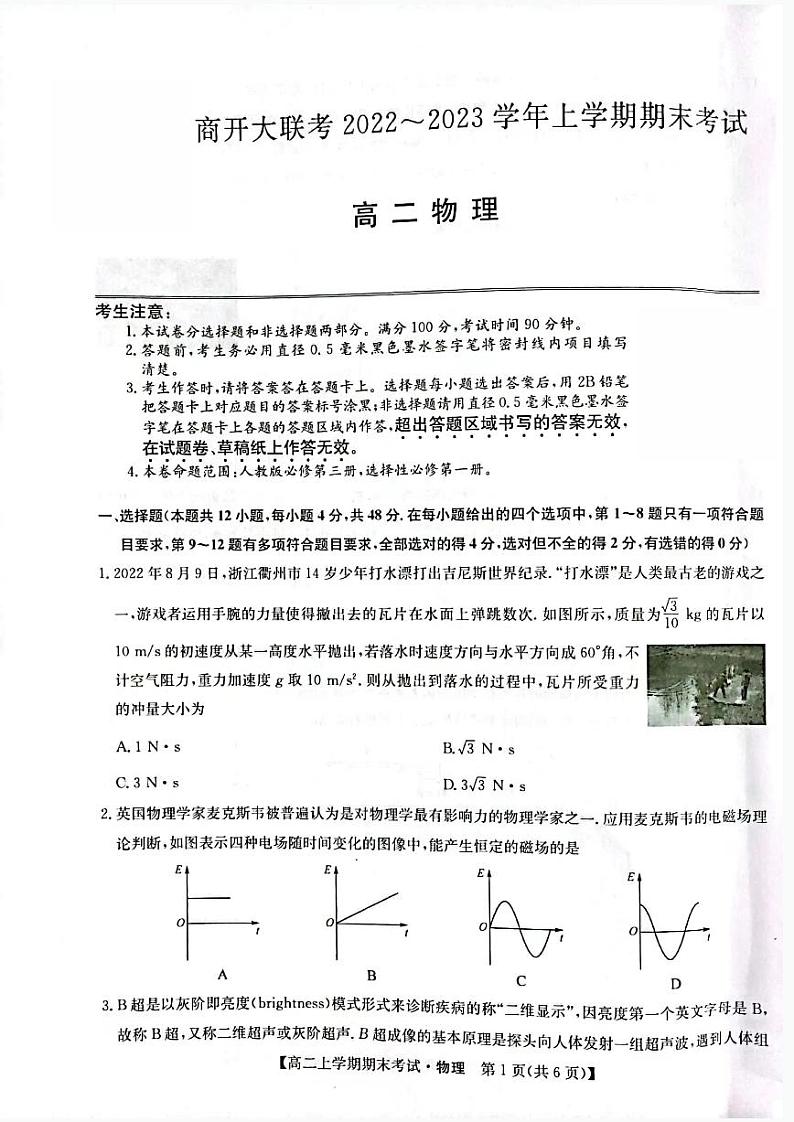 商开大联考 2022～2023 学年上学期期末考试
高二物理
考生注意：
1. 本试卷分选择题和非选择题两部分。满分 100 分,考试时间 90 分钟。
2. 答题前,考生务必用直径 0.5 毫米黑色墨水签字笔将密封线内项目填写
清楚。
3. 考生作答时,请将答案答在答题卡上。选择题每小题选出答案后,用 2B 铅笔
把答题卡上对应题目的答案标号涂黑;非选择题请用直径 0.5 毫米黑色墨水签
字笔在答题卡上各题的答题区域内作答,超出答题区域书写的答案无效,
在试题卷、草稿纸上作答无效。
4. 本卷命题范围:人教版必修第三册,选择性必修第一册。
一、选择题(本题共 12 小题,每小题 4 分,共 48 分. 在每小题给出的四个选项中,第 1～8 题只有一项符合题
目要求,第 9～12 题有多项符合题目要求,全部选对的得 4 分,选对但不全的得 2 分,有选错的得 0 分)
1. 2022 年 8 月 9 日,浙江衢州市 14 岁少年打水漂打出吉尼斯世界纪录. “打水漂”是人类最古老的游戏之
一,游戏者运用手腕的力量使得撇出去的瓦片在水面上弹跳数次. 如图所示,质量为√3/10 kg 的瓦片以
10 m/s 的初速度从某一高度水平抛出,若落水时速度方向与水平方向成 60°角,不
计空气阻力,重力加速度 g 取 10 m/s². 则从抛出到落水的过程中,瓦片所受重力
的冲量大小为
A. 1 N·s B. √3 N·s
C. 3 N·s D. 3√3 N·s
2. 英国物理学家麦克斯韦被普遍认为是对物理学最有影响力的物理学家之一. 应用麦克斯韦的电磁场理
论判断,如图表示四种电场随时间变化的图像中,能产生恒定的磁场的是
E E E E
O t O t O t O t
A B C D
3. B 超是以灰阶即亮度(brightness)模式形式来诊断疾病的称“二维显示”,因亮度第一个英文字母是 B,
故称 B 超,又称二维超声或灰阶超声. B 超成像的基本原理是探头向人体发射一组超声波,遇到人体组
【高二上学期期末考试·物理 第 1 页(共 6 页)】